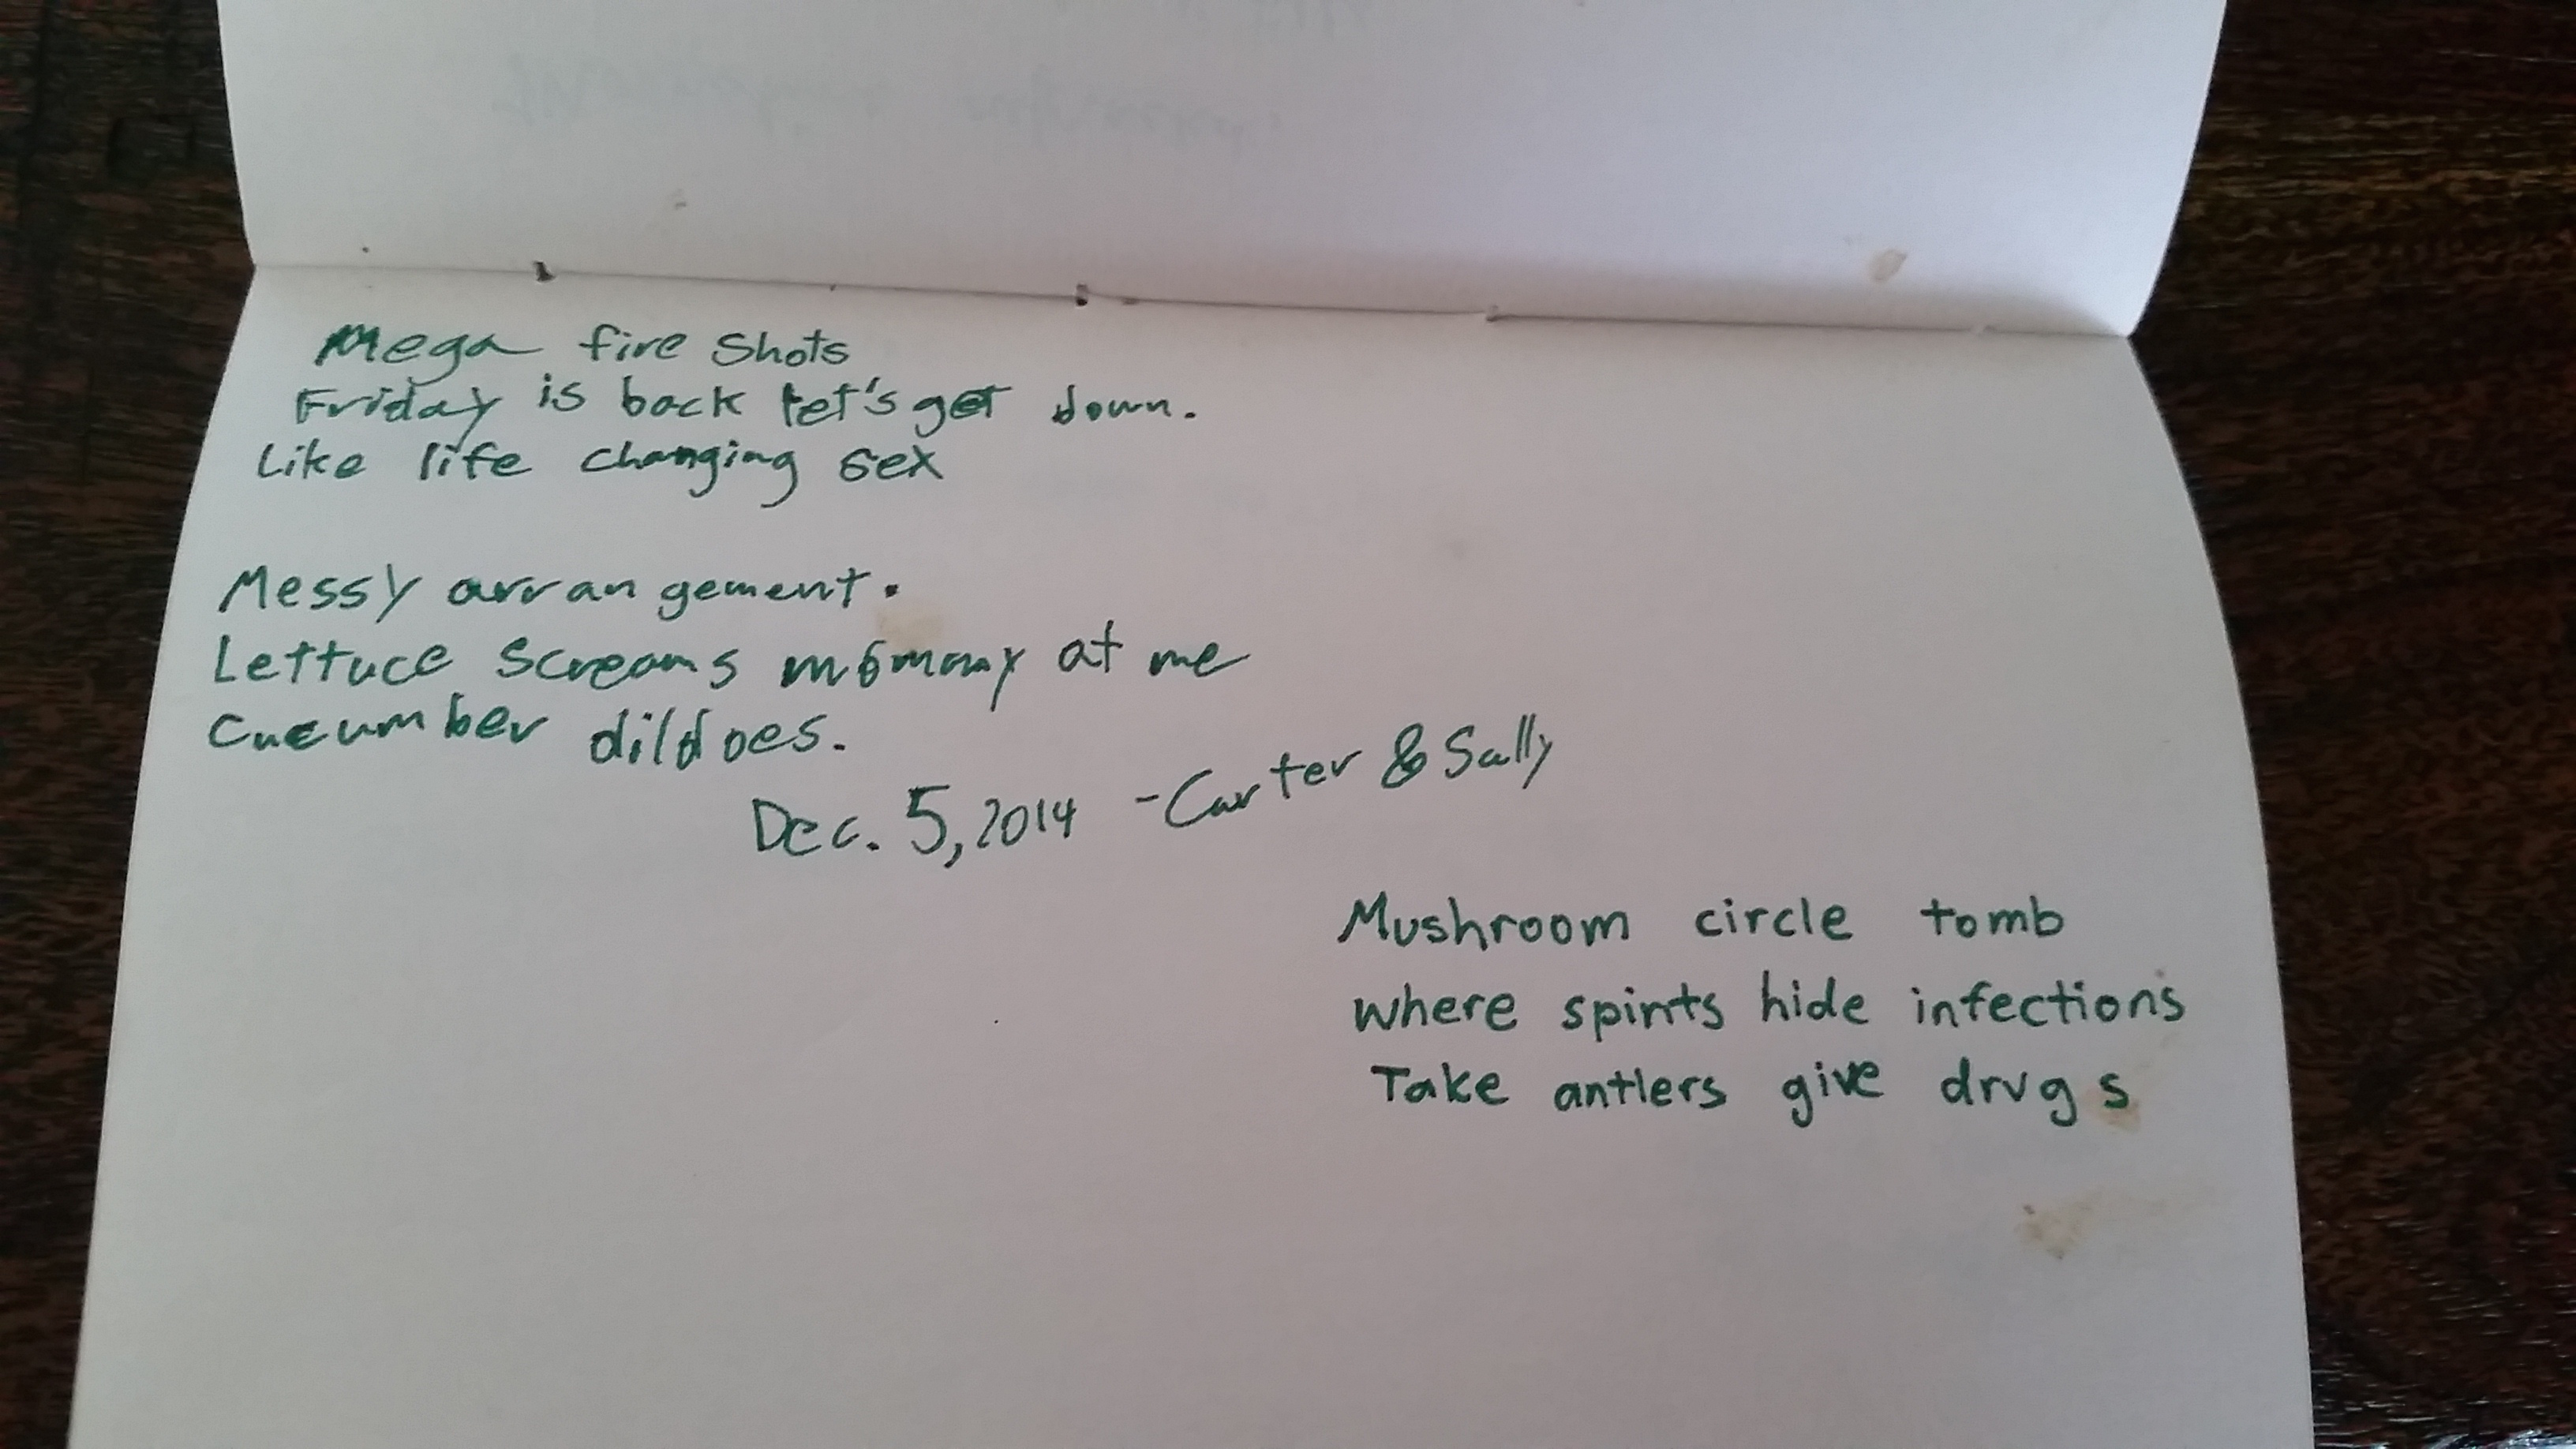 Mega fire shots
Friday is back let's get down.
Like life changing sex
Messy arrangement.
Lettuce screams mommy at me
Cucumber dildoes.
Dec. 5, 2014 -Carter & Sally
Mushroom circle tomb
where spirits hide infections
Take antlers give drugs